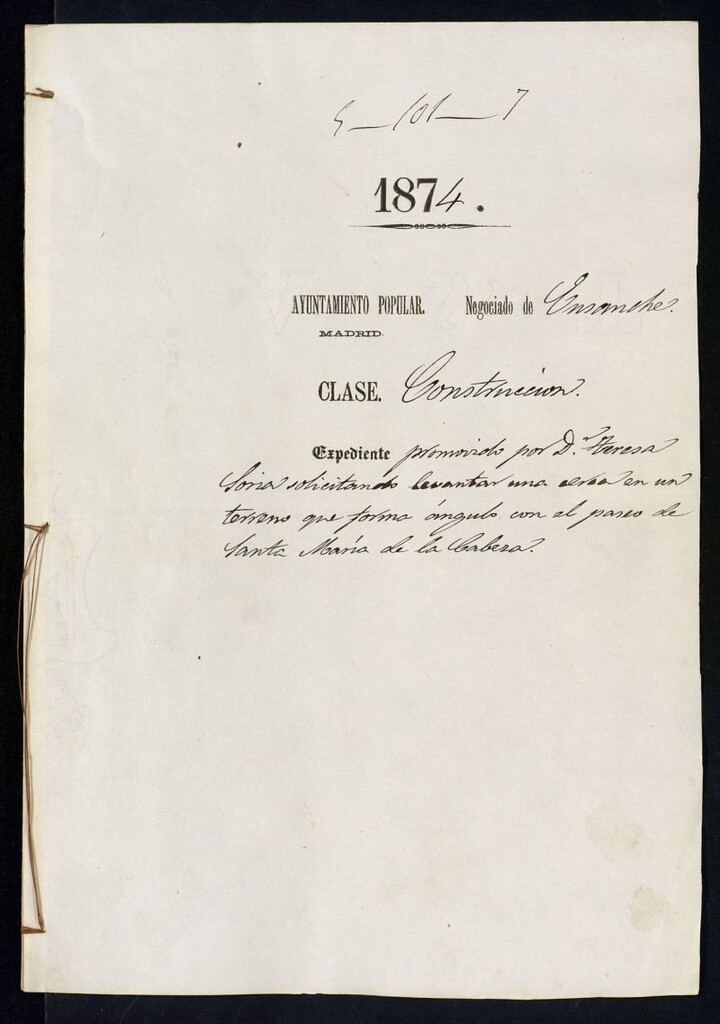 5-101-7
1874.
AYUNTAMIENTO POPULAR. Negociado de Ensanche.
MADRID.
CLASE. Construccion.
Expediente promovido por D.ª Teresa
Soria solicitando levantar una cerca en un
terreno que forma ángulo con el paseo de
Santa María de la Cabeza.